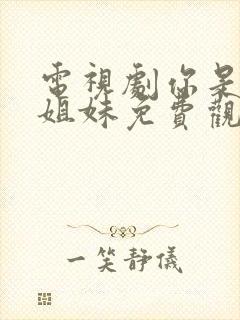 電視劇你是
姐妹免費觀
一笑靜儀